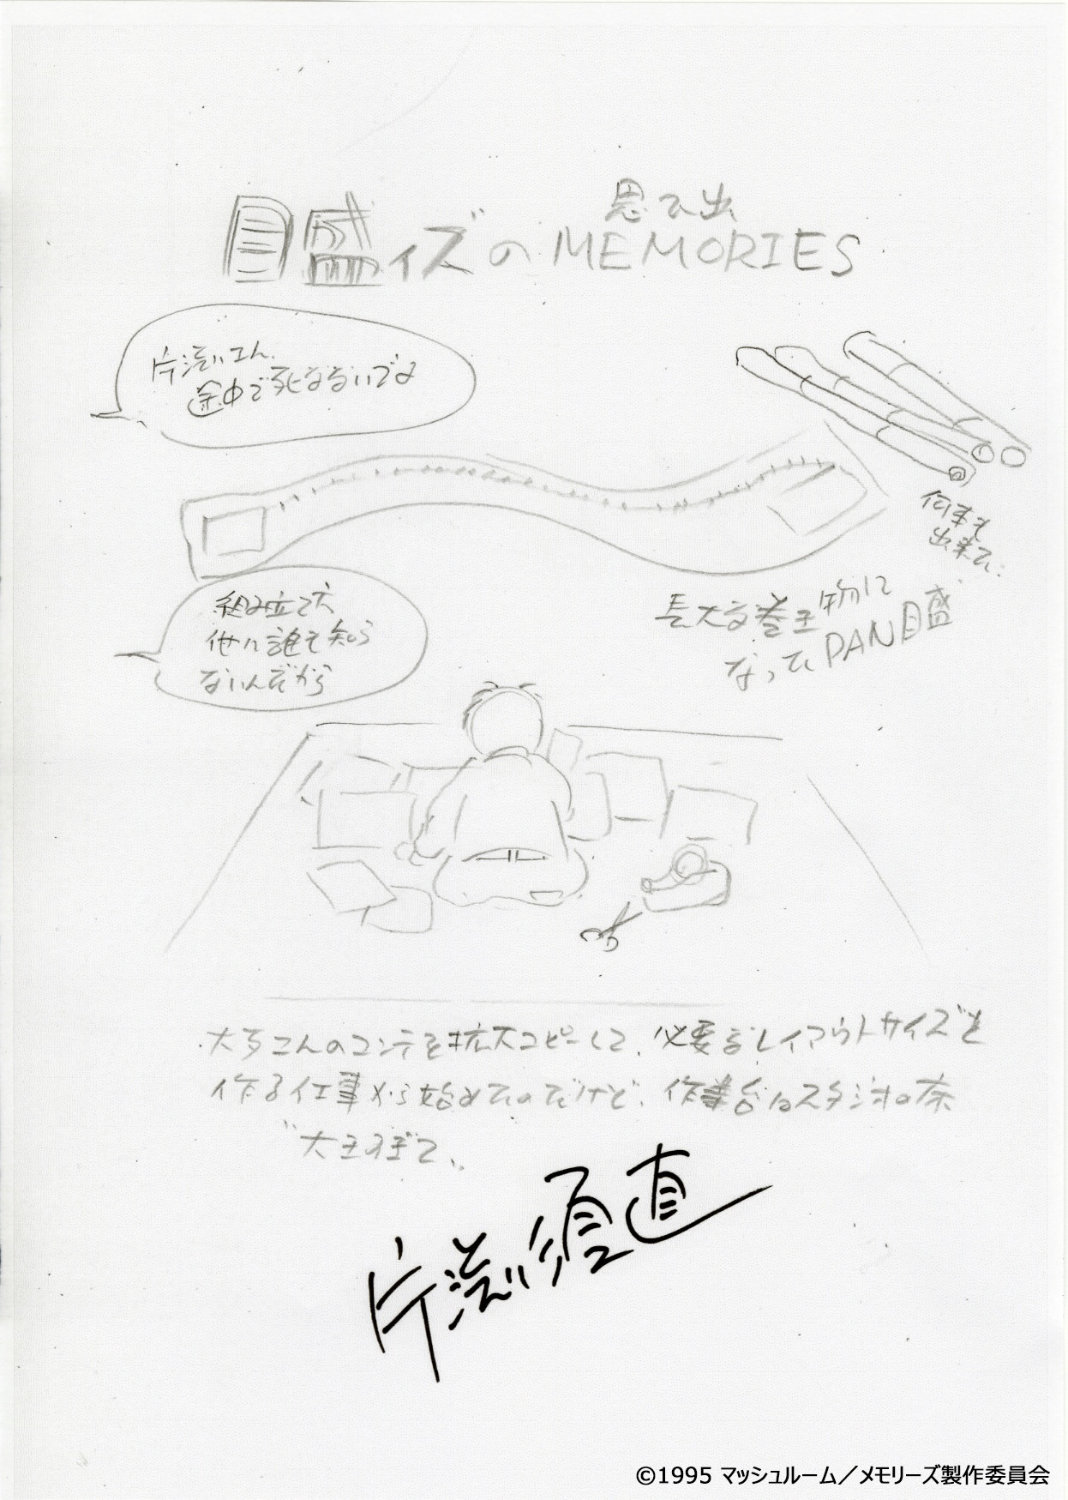 思ひ出
目盛ィズのMEMORIES
片渕さん、
途中で死なないでよ
何本も
出来て…
長大な巻き物に
なってPAN目盛
組み立て方
他に誰も知ら
ないんだから
大友さんのコンテを拡大コピーして、必要なレイアウトサイズを
作る仕事から始めてのだけど、作業台はスタジオの床
大きすぎて、
片渕須直
©1995 マッシュルーム／メモリーズ製作委員会